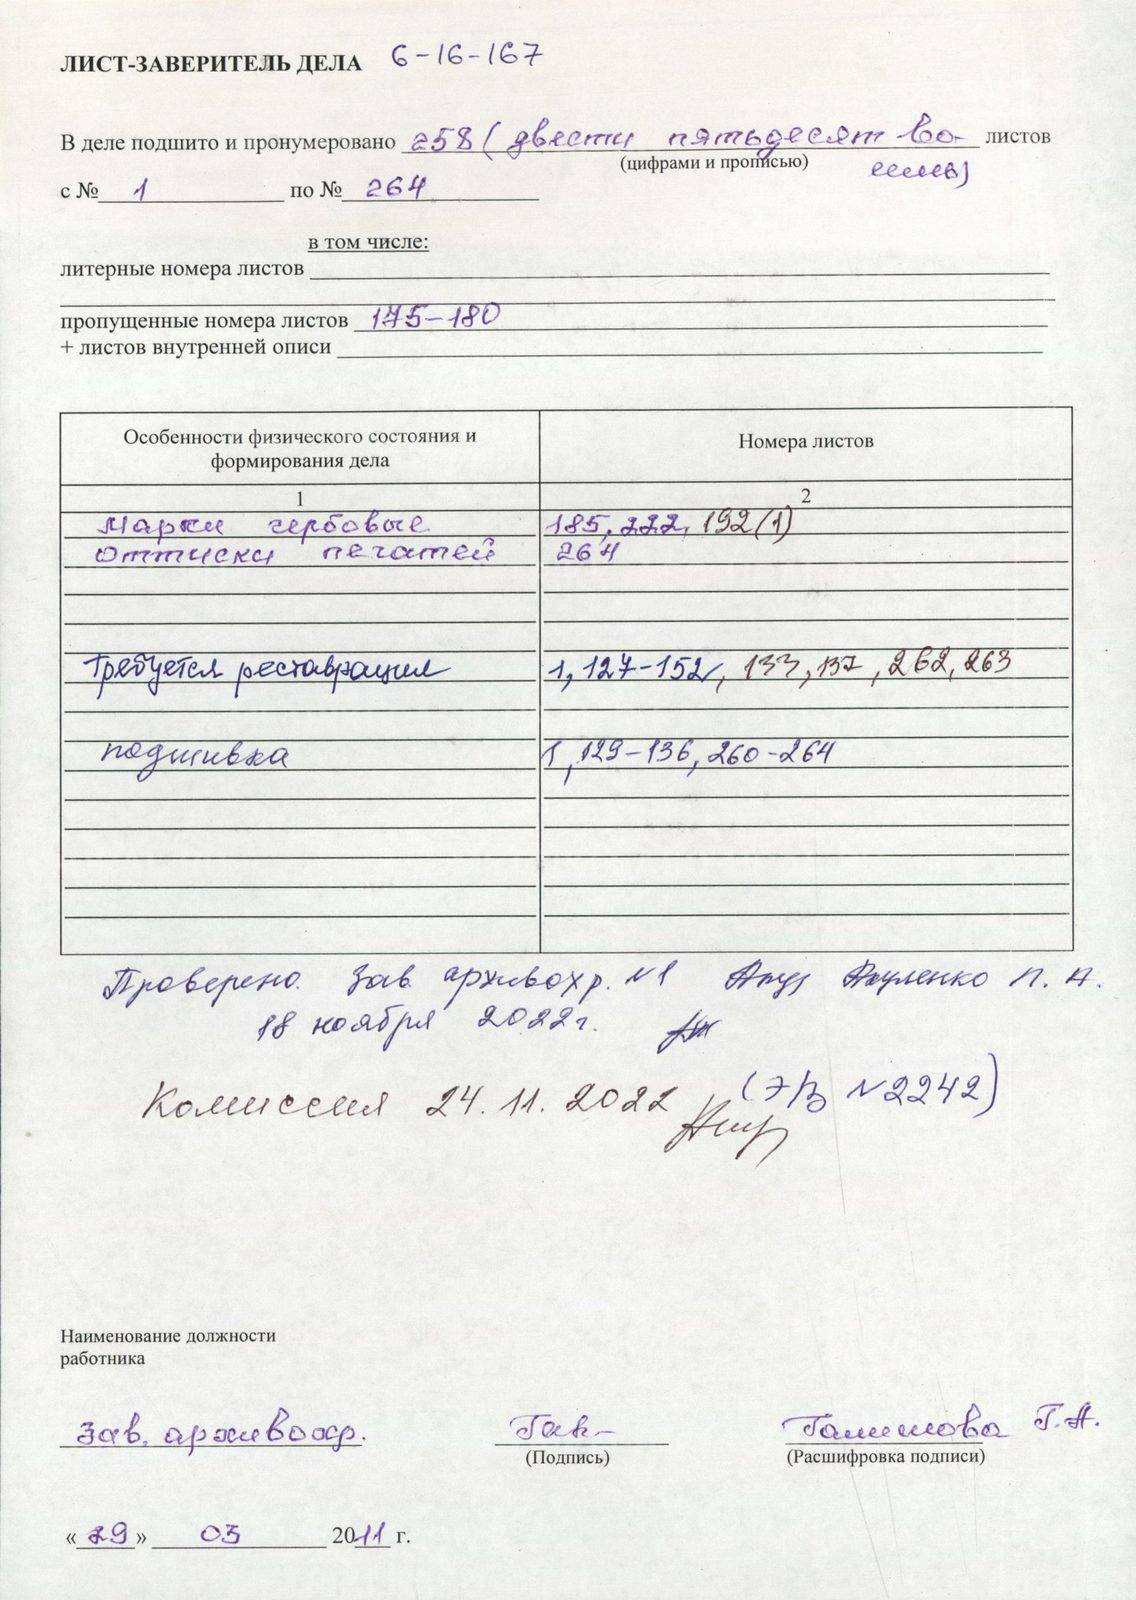 ЛИСТ-ЗАВЕРИТЕЛЬ ДЕЛА 6-16-167
В деле подшито и пронумеровано 258 (двести пятьдесят во- листов
(цифрами и прописью) семь)
с № 1 по № 264
в том числе:
литерные номера листов
пропущенные номера листов 175-180
+ листов внутренней описи
Особенности физического состояния и формирования дела
Номера листов
1 2
Марки гербовые 185, 222, 192(1)
Оттиски печатей 264
Требуется реставрация 1, 127-152, 133, 137, 262, 263
подшивка 1, 129-136, 260-264
Проверено. Зав. архивохр. №1 Акуленко
18 ноября 2022г.
Комиссия 24.11.2022 (Э/В №2242)
Наименование должности
работника
Зав. архивохр. Галимова Г.А.
(Подпись) (Расшифровка подписи)
«29» 03 2011 г.